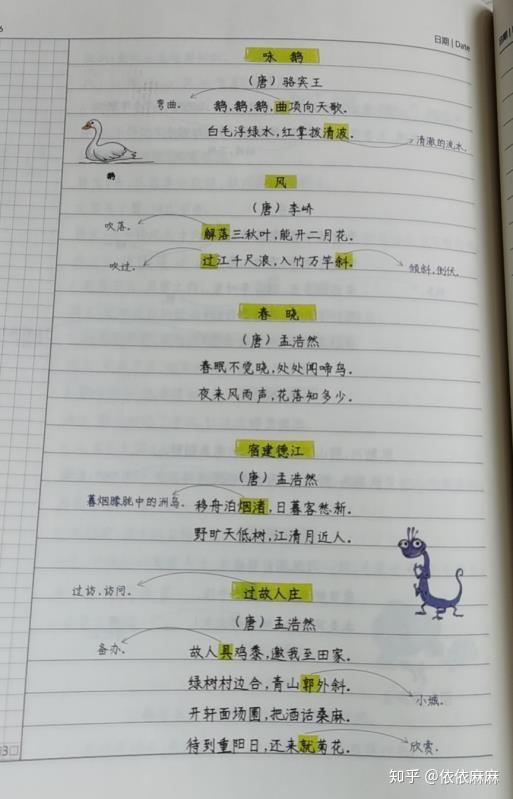 日期 | Date
咏 鹅
（唐）骆宾王
弯曲。
鹅，鹅，鹅，曲项向天歌。
白毛浮绿水，红掌拨清波。
清澈的流水。
鹅
风
（唐）李峤
吹落。
解落三秋叶，能开二月花。
吹过。
过江千尺浪，入竹万竿斜。
倾斜，倒伏。
春 晓
（唐）孟浩然
春眠不觉晓，处处闻啼鸟。
夜来风雨声，花落知多少。
宿建德江
（唐）孟浩然
暮烟朦胧中的洲岛。
移舟泊烟渚，日暮客愁新。
野旷天低树，江清月近人。
过访，访问。
过故人庄
（唐）孟浩然
备办。
故人具鸡黍，邀我至田家。
绿树村边合，青山郭外斜。
小城。
开轩面场圃，把酒话桑麻。
待到重阳日，还来就菊花。
欣赏。
知乎 @依依麻麻